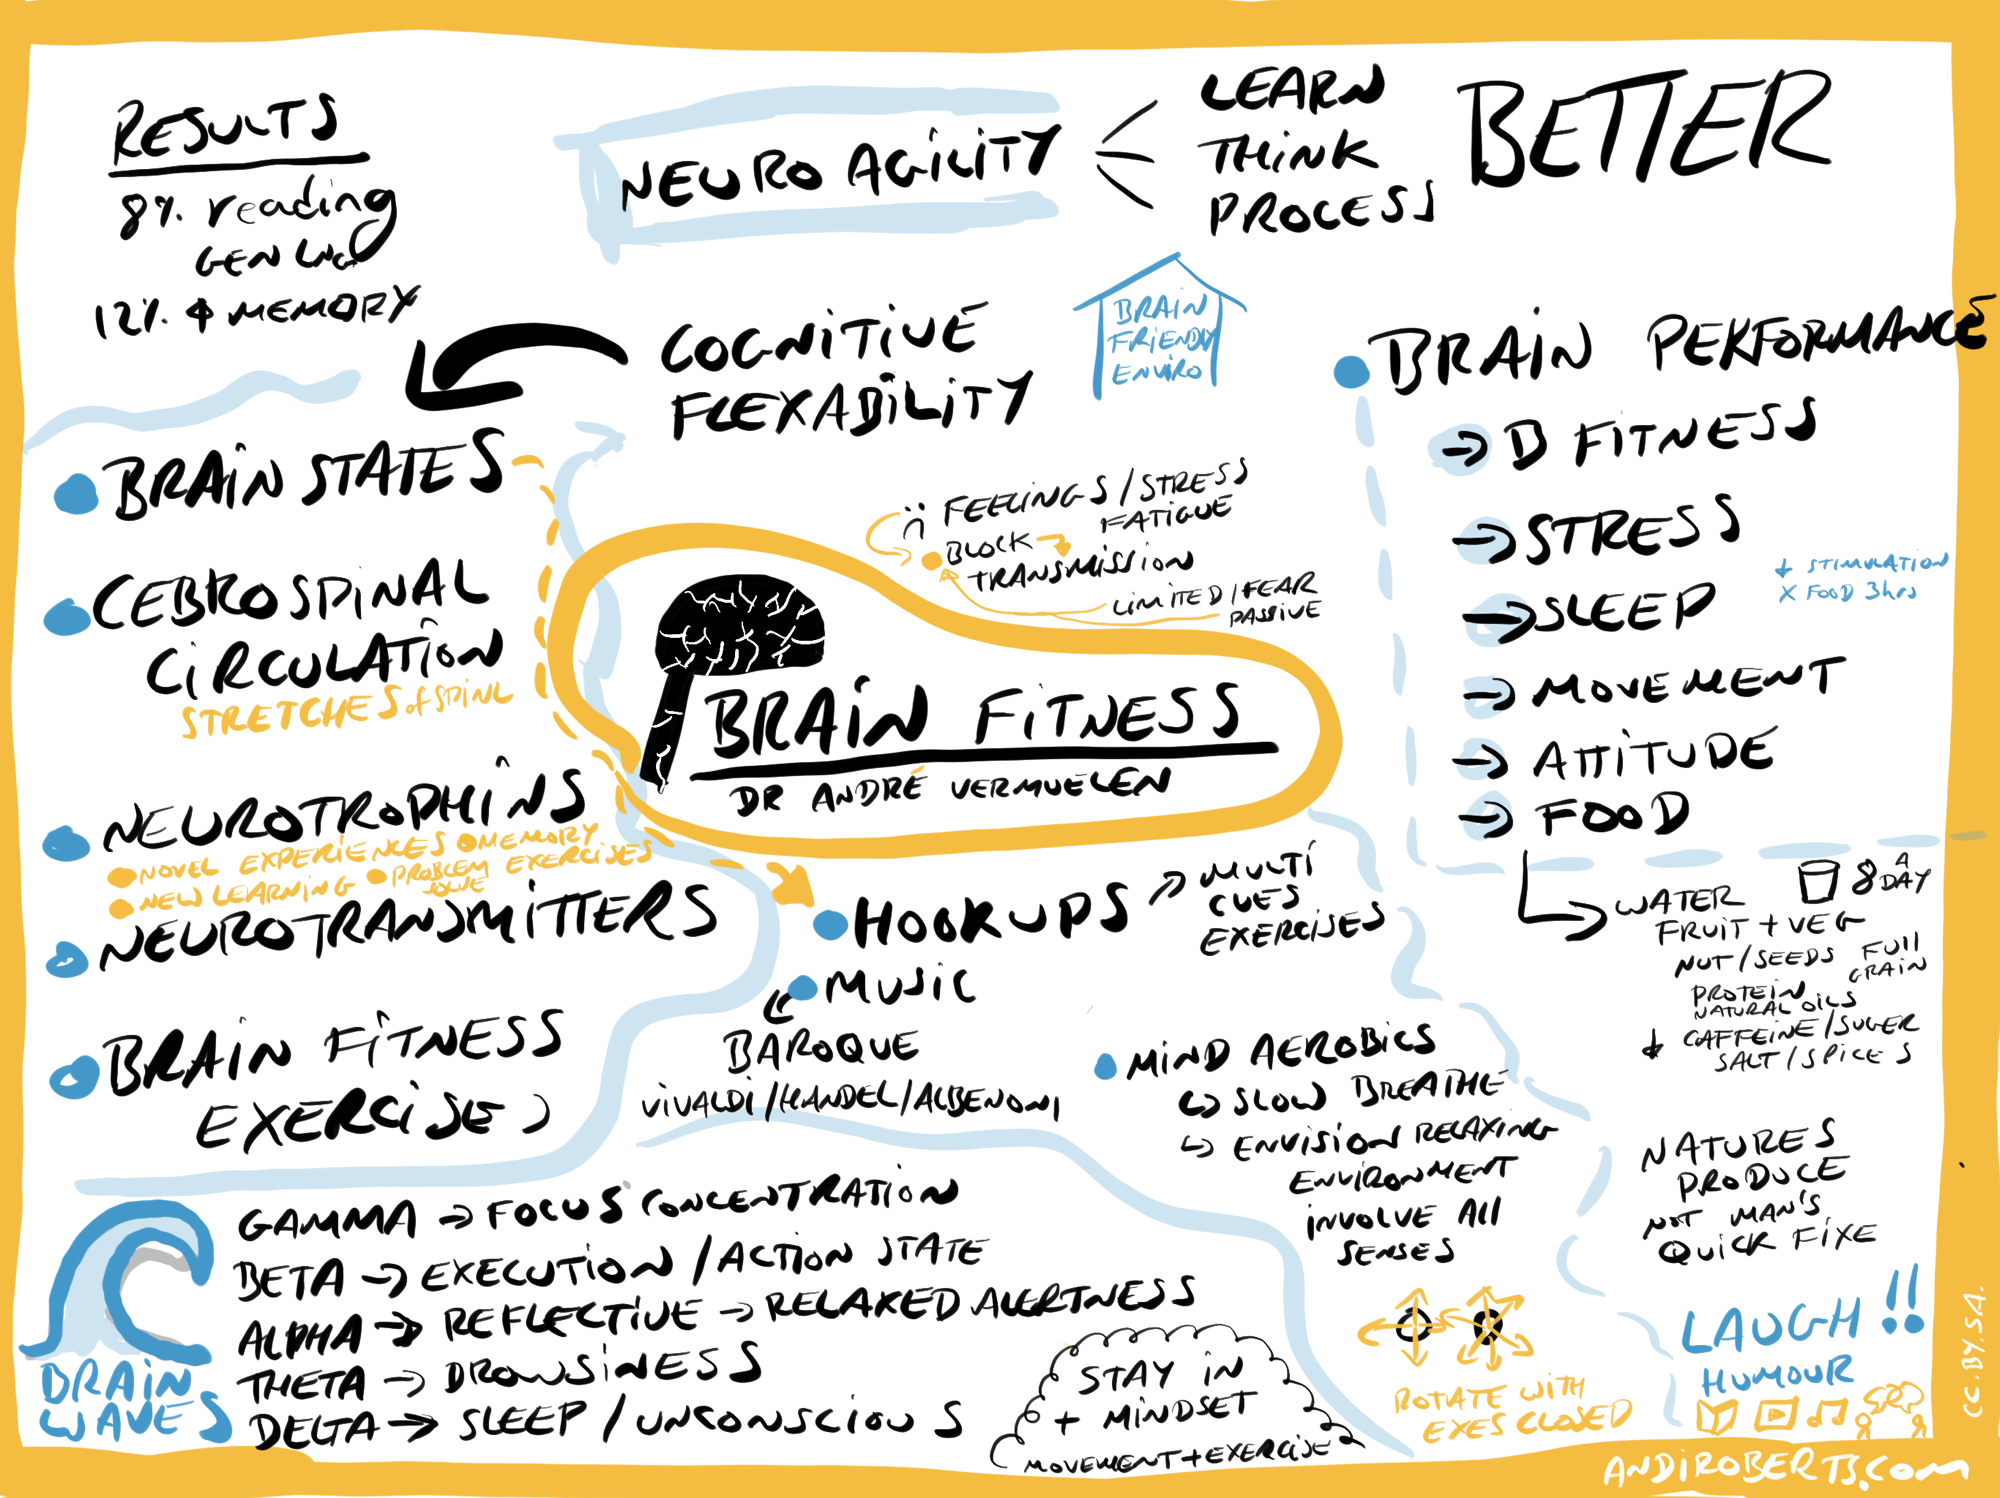 RESULTS
8% reading
GEN LNG
12% MEMORY
NEURO AGILITY
LEARN
THINK
PROCESS
BETTER
COGNITIVE
FLEXABILITY
BRAIN
FRIENDLY
ENVIRO
BRAIN PERFORMANCE
→ B FITNESS
→ STRESS
→ SLEEP
↓ STIMULATION
X FOOD 3hrs
→ MOVEMENT
→ ATTITUDE
→ FOOD
WATER
8 A DAY
FRUIT + VEG
NUT/SEEDS FULL
GRAIN
PROTEIN
NATURAL OILS
↓ CAFFEINE/SUGER
SALT/SPICES
NATURES
PRODUCE
NOT MAN'S
QUICK FIXE
LAUGH!!
HUMOUR
BRAIN STATES
CEBROSPINAL
CIRCULATION
STRETCHES of SPINL
NEUROTROPHINS
NOVEL EXPERIENCES MEMORY
NEW LEARNING PROBLEM EXERCISES
NEUROTRANSMITTERS
BRAIN FITNESS
EXERCISES
FEELINGS/STRESS
FATIGUE
BLOCK
TRANSMISSION
LIMITED/FEAR
PASSIVE
BRAIN FITNESS
DR ANDRÉ VERMUELEN
HOOKUPS
MULTI
CUES
EXERCISES
MUSIC
BAROQUE
VIVALDI/HANDEL/ALBENONI
MIND AEROBICS
SLOW BREATHE
ENVISION RELAXING
ENVIRONMENT
INVOLVE All
SENSES
ROTATE WITH
EXES CLOSED
BRAIN
WAVES
GAMMA → FOCUS CONCENTRATION
BETA → EXECUTION/ACTION STATE
ALPHA → REFLECTIVE → RELAXED ALERTNESS
THETA → DROWSINESS
DELTA → SLEEP/UNCONSCIOUS
STAY IN
+ MINDSET
MOVEMENT + EXERCISE
CC.BY.SA.
ANDIROBERTS.COM